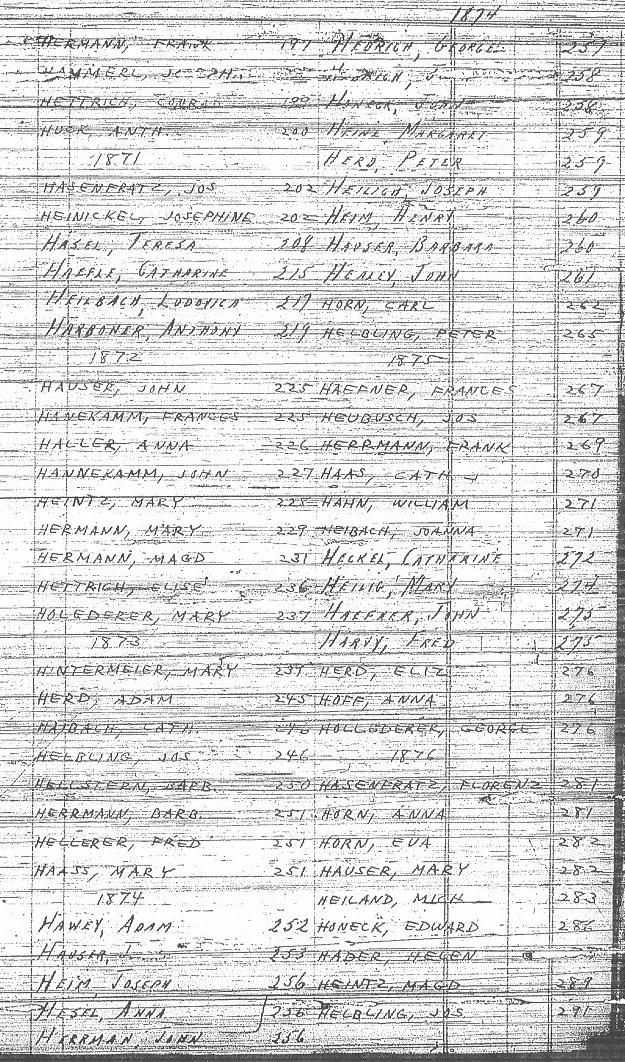 HERMANN, FRANK 197
HAMMERL, JOSEPH 
HETTRICH, CONRAD 199
HUCK, ANTH. 200
1871
HASENFRATZ, JOS 202
HEINICKEL, JOSEPHINE 202
HASEL, TERESA 208
HAEFLE, CATHARINE 215
HEILBACH, LUDOVICA 217
HARBONER, ANTHONY 219
1872
HAUSER, JOHN 225
HANEKAMM, FRANCES 225
HALLER, ANNA 226
HANNEKAMM, JOHN 227
HEINTZ, MARY 228
HERMANN, MARY 229
HERMANN, MAGD 231
HETTRICH, ELISE 236
HOLEDERER, MARY 237
1873
HINTERMEIER, MARY 239
HERD, ADAM 245
HAIBACH, CATH. 246
HELBLING, JOS 246
HELLSTERN, BARB. 250
HERRMANN, BARB. 251
HELLERER, FRED 251
HAASS, MARY 251
1874
HAWEY, ADAM 252
HAUSER, J 253
HEIM, JOSEPH 256
HESEL, ANNA 256
HERRMAN, JOHN 256
1874
HEDRICH, GEORGE 257
258
HONECK, JOHN 258
HEINZ, MARGARET 259
HERD, PETER 259
HEILIGH, JOSEPH 259
HEIM, HENRY 260
HAUSER, BARBARA 260
HEALEY, JOHN 261
HORN, CARL 262
HELBLING, PETER 265
1875
HAEFNER, FRANCES 267
HEUBUSCH, JOS 267
HERRMANN, FRANK 269
HAAS, CATH 270
HAHN, WILLIAM 271
HEIBACH, JOANNA 271
HECKEL, CATHERINE 272
HEILIG, MARY 274
HAEFNER, JOHN 275
HARVY, FRED 275
HERD, ELIZ 276
HOFF, ANNA 276
HOLLEDERER, GEORGE 276
1876
HASENFRATZ, FLORENZ 281
HORN, ANNA 281
HORN, EVA 282
HAUSER, MARY 282
HEILAND, MICH 283
HONECK, EDWARD 286
HADER, HELEN
HEINTZ, MAGD 289
HELBLING, JOS 291